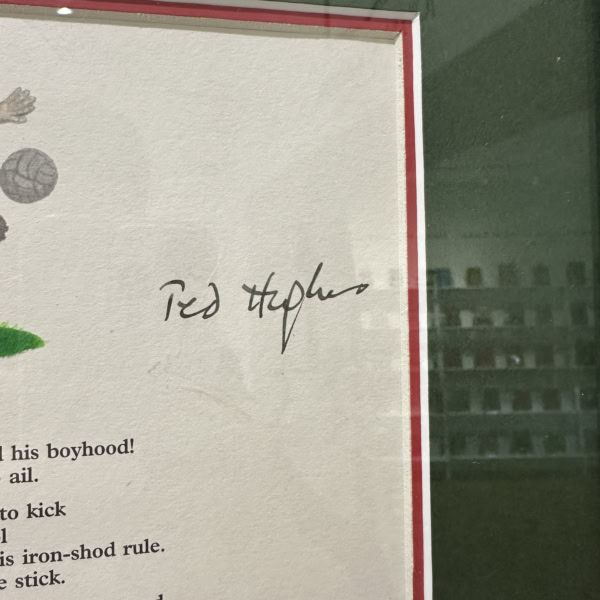 Ted Hughes
his boyhood!
ail.
to kick
is iron-shod rule.
stick.